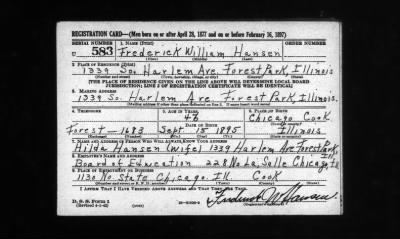 REGISTRATION CARD—(Men born on or after April 28, 1877 and on or before February 16, 1897)
SERIAL NUMBER 1. NAME (Print)
U 583 Frederick William Hansen
(First) (Middle) (Last)
2. PLACE OF RESIDENCE (Print)
1339 So. Harlem Ave. Forest Park, Illinois
(Number and street) (Town, township, village, or city) (County) (State)
[THE PLACE OF RESIDENCE GIVEN ON THE LINE ABOVE WILL DETERMINE LOCAL BOARD
JURISDICTION; LINE 2 OF REGISTRATION CERTIFICATE WILL BE IDENTICAL]
3. MAILING ADDRESS
1339 So. Harlem Ave. Forest Park, Illinois.
(Mailing address if other than place indicated on line 2. If same insert word same)
4. TELEPHONE 5. AGE IN YEARS 6. PLACE OF BIRTH
46 Chicago Cook
DATE OF BIRTH
Forest—1683 Sept. 15 1895 Illinois
(Exchange) (Number) (Mo.) (Day) (Yr.) (State or country)
7. NAME AND ADDRESS OF PERSON WHO WILL ALWAYS KNOW YOUR ADDRESS
Hilda Hansen (wife) 1339 Harlem Ave. Forest Park, Ill.
8. EMPLOYER'S NAME AND ADDRESS
Board of Education 228 No. La Salle Chicago, Ill
9. PLACE OF EMPLOYMENT OR BUSINESS
1130 No. State Chicago. Ill. Cook
(Number and street or R. F. D. number) (Town) (County) (State)
I AFFIRM THAT I HAVE VERIFIED ABOVE ANSWERS AND THAT THEY ARE TRUE.
D. S. S. Form 1
(Revised 4-1-42) (over) Frederick W Hansen
(Registrant's signature)